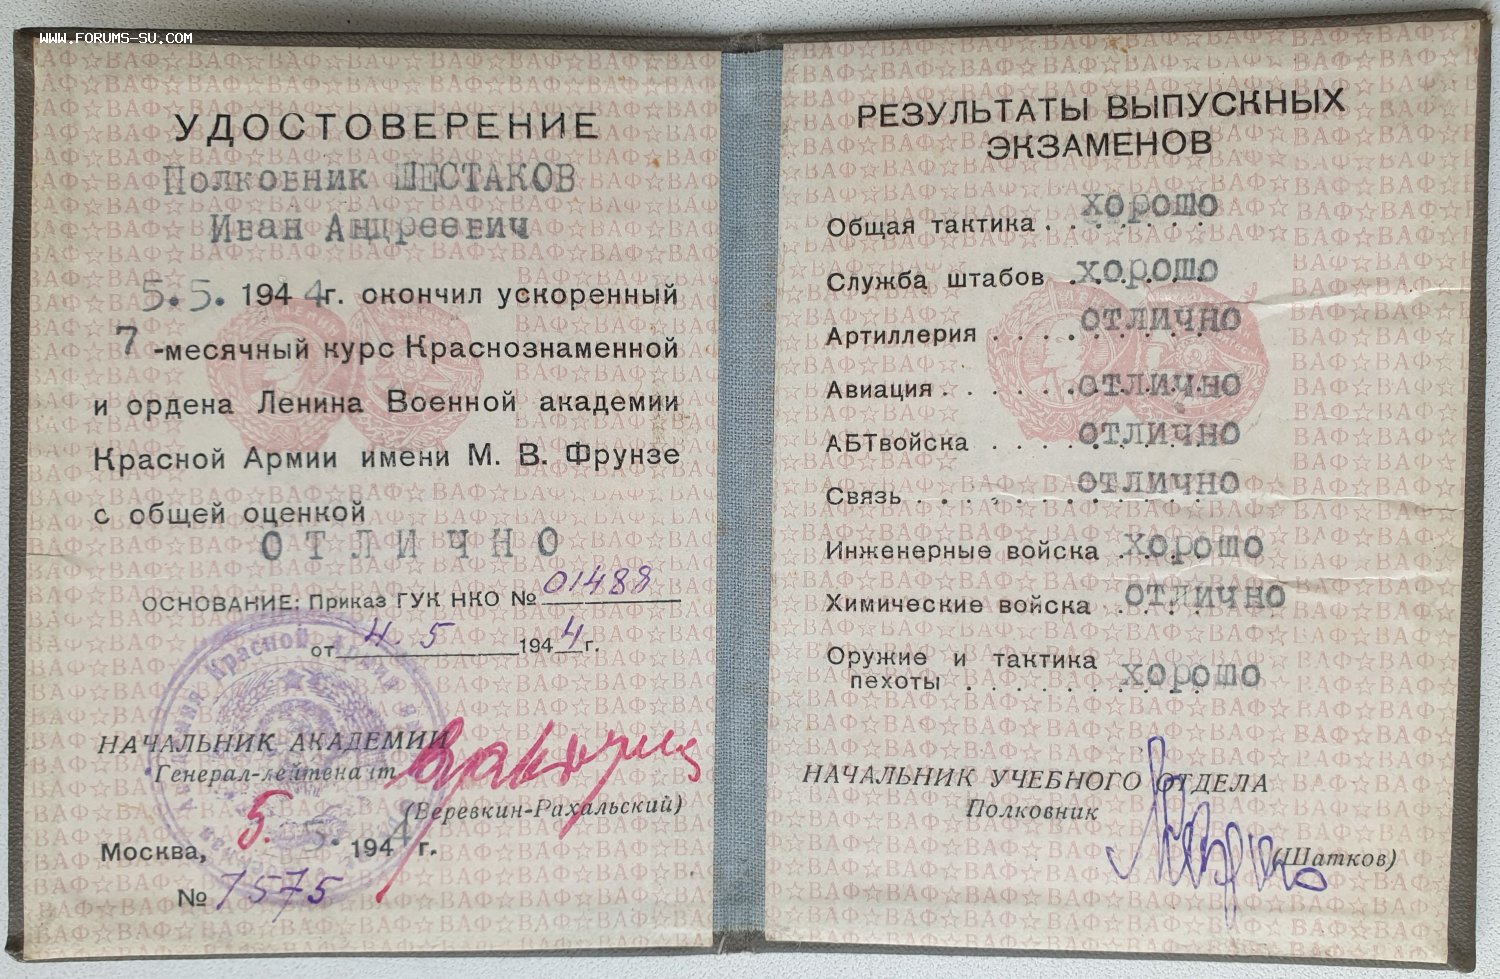 WWW.FORUMS-SU.COM
УДОСТОВЕРЕНИЕ
Полковник ШЕСТАКОВ
Иван Андреевич
5.5. 1944г. окончил ускоренный
7-месячный курс Краснознаменной
и ордена Ленина Военной академии
Красной Армии имени М. В. Фрунзе
с общей оценкой
ОТЛИЧНО
ОСНОВАНИЕ: Приказ ГУК НКО № 01488
от 4. 5 1944г.
НАЧАЛЬНИК АКАДЕМИИ
Генерал-лейтенант
(Веревкин-Рахальский)
5. 5. 1944 г.
Москва,
№ 7575
РЕЗУЛЬТАТЫ ВЫПУСКНЫХ
ЭКЗАМЕНОВ
Общая тактика . . . . . . . хорошо
Служба штабов . . . . . . хорошо
Артиллерия . . . . . . . . . отлично
Авиация . . . . . . . . . . . отлично
АБТвойска . . . . . . . . . отлично
Связь . . . . . . . . . . . . отлично
Инженерные войска . . . . хорошо
Химические войска . . . . отлично
Оружие и тактика
пехоты . . . . . . . . . . хорошо
НАЧАЛЬНИК УЧЕБНОГО ОТДЕЛА
Полковник
(Шатков)